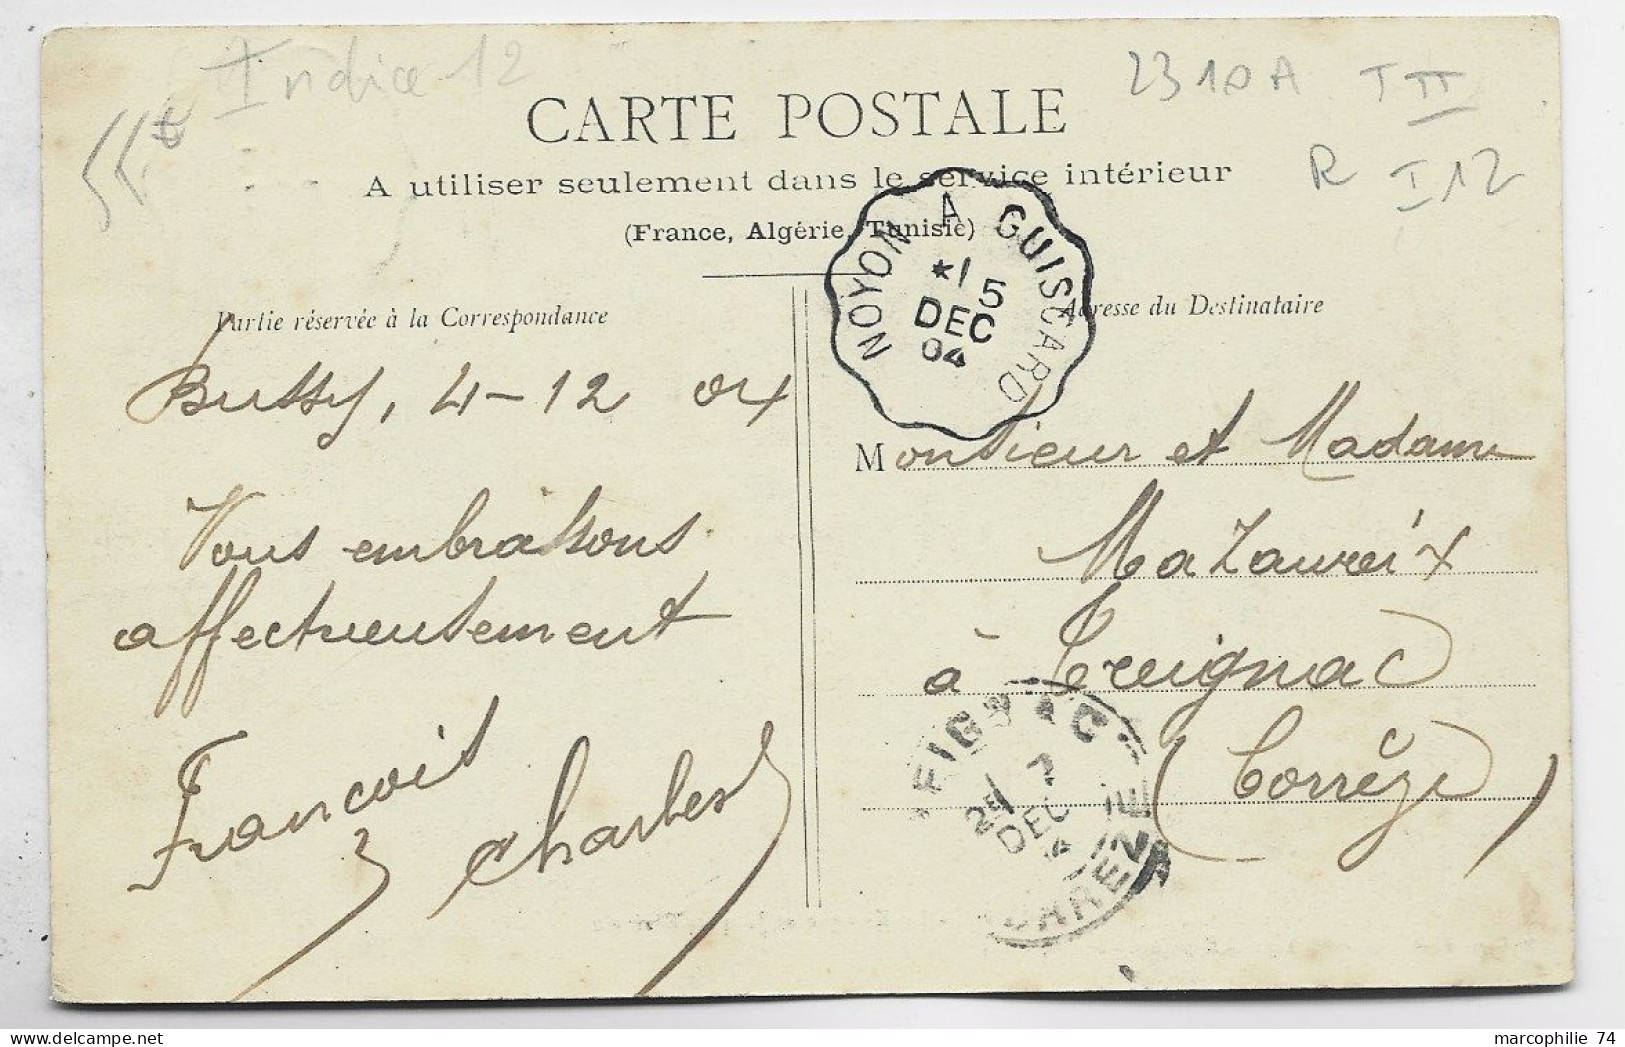 Indice 12
55€
2310A TII
R I12
CARTE POSTALE
A utiliser seulement dans le service intérieur
(France, Algérie, Tunisie)
NOYON A GUISCARD
*1
5
DEC
04
Partie réservée à la Correspondance
Adresse du Destinataire
Bussy, 4-12 04
Vous embrassons
affectueusement
François
Charles
Monsieur et Madame
Mazaureix
à Treignac
(Corrèze)
EIGNAC
7
DEC
CORREZE
marcophilie 74